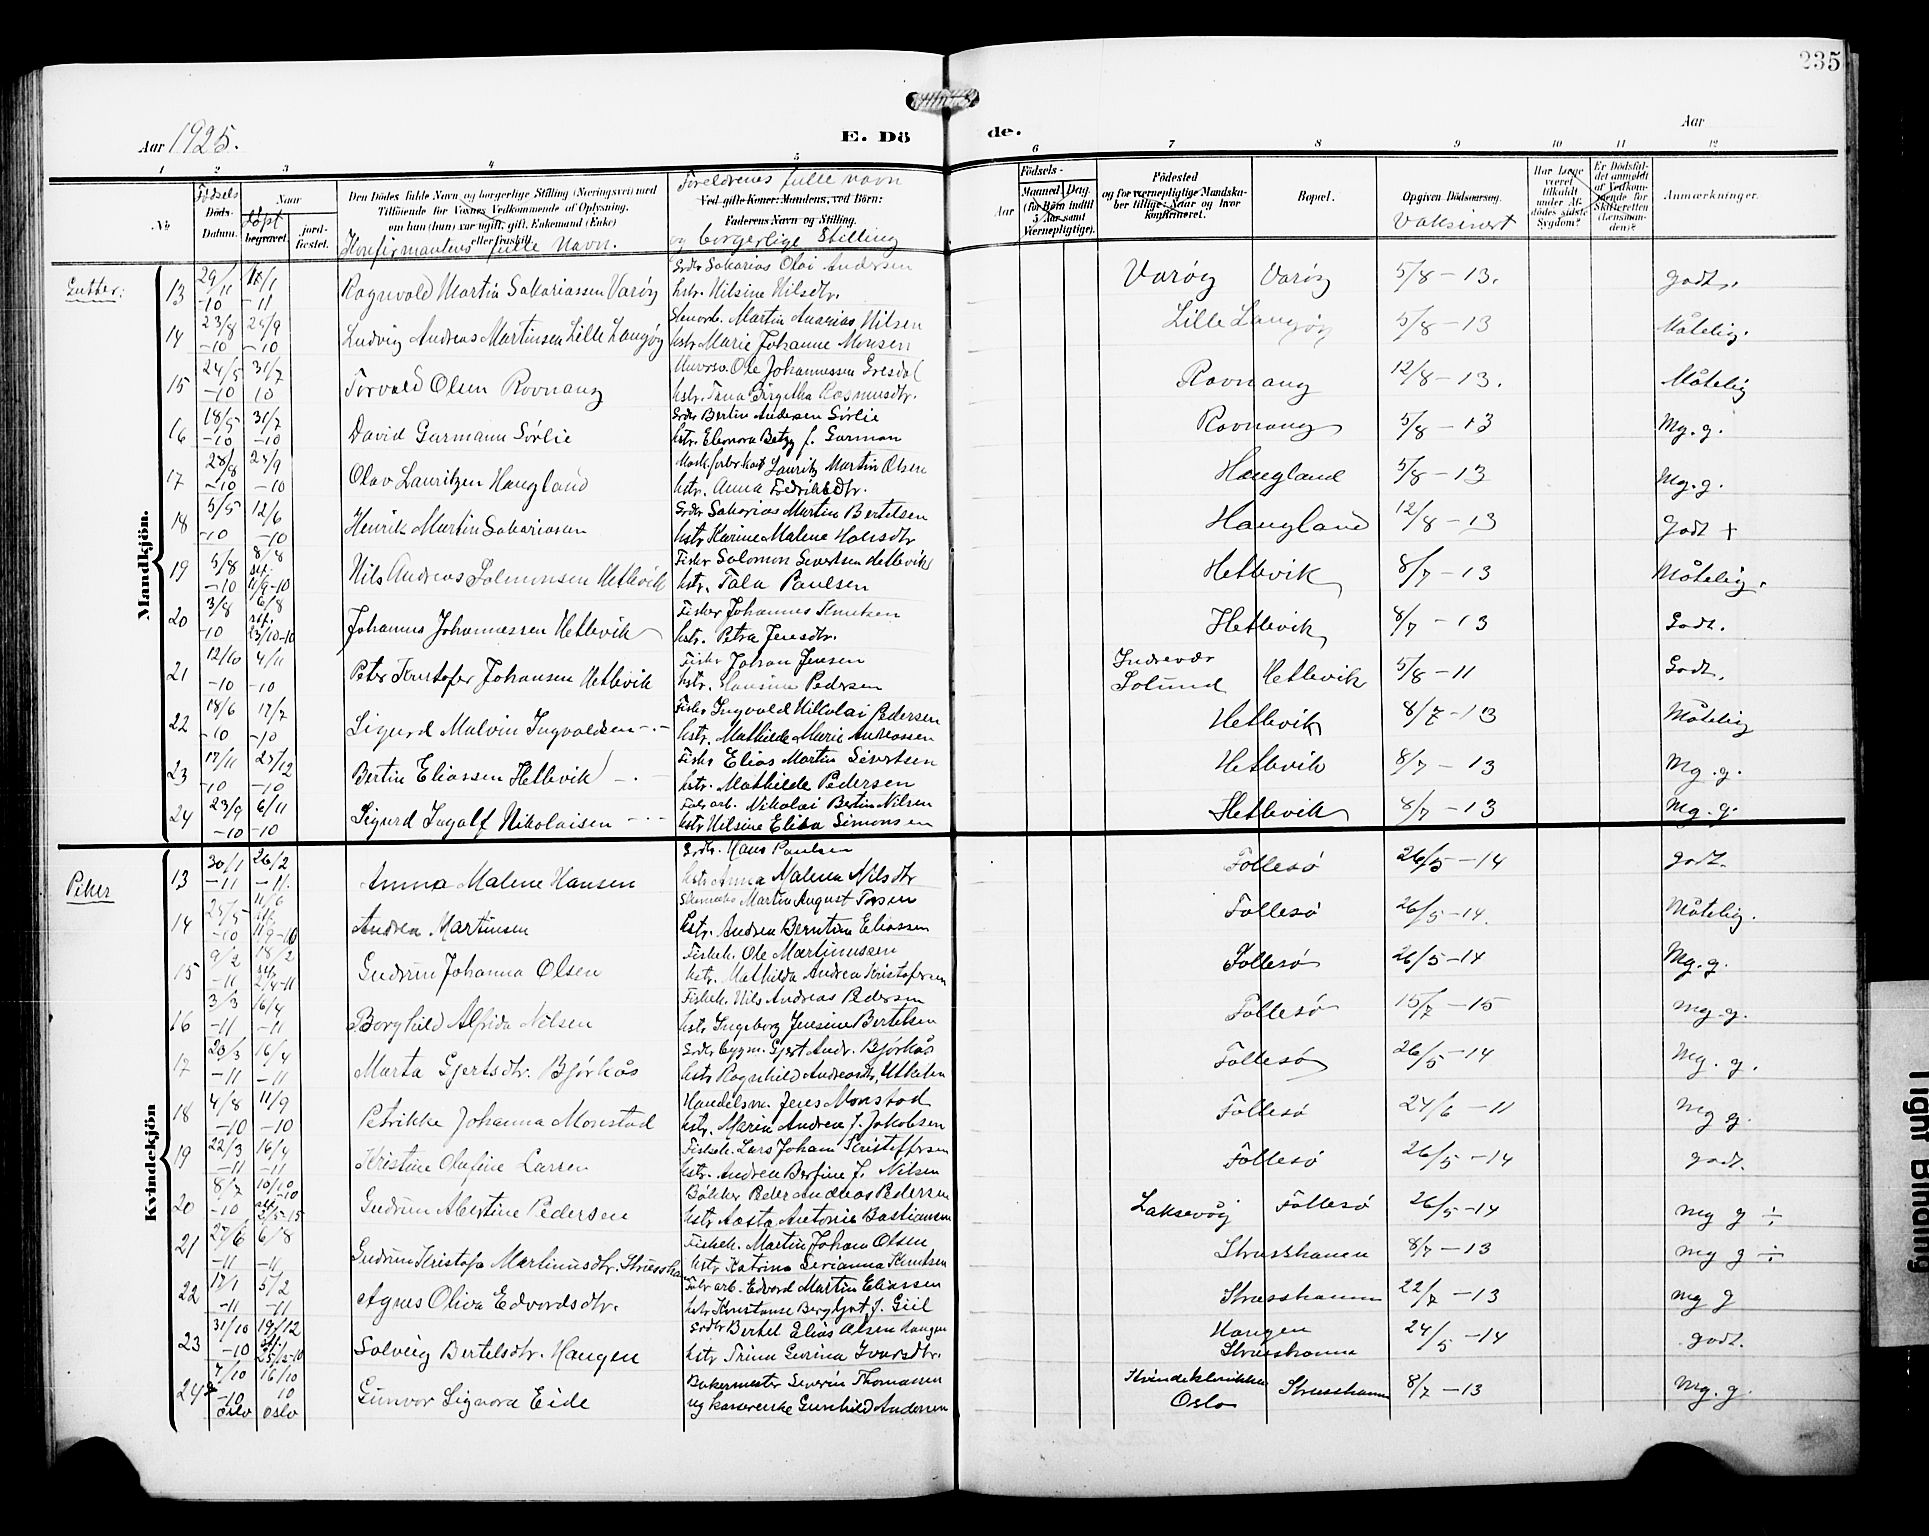 235
Aar 1925.
E. Dö de.
Aar
1 2 3 4 5 6 7 8 9 10 11 12
No
Fødsels
Döds-
Datum.
Naar
døpt
begravet.
jord-
fæstet.
Den Dödes fulde Navn og borgerlige Stilling (Næringsvei) med
Tilföiende for Voxnes Vedkommende af Oplysning,
om han (hun) var ugift, gift, Enkemand (Enke)
eller fraskilt.
Konfirmantens fulle Navn.
Foreldrenes fulle navn
Ved gifte Koner: Mandens, ved Börn:
Faderens Navn og Stilling.
og borgerlige Stilling
Aar
Födsels-
Maaned Dag.
(for Börn indtil
5 Aar samt
Værnepligtige).
Födested
og for værnepligtige Mandska-
ber tillige: Naar og hvor
konfirmeret.
Bopæl.
Opgiven Dödsaarsag.
Vaksinert
Har Læge
været
tilkaldt
under Af-
dödes sidste
Sygdom?
Er Dödsfal-
det anmeldt
af Vedkom-
mende for
Skifteretten
(Lensman-
den)?
Anmærkninger.
Gutter:
Mandkjön.
13 29/11 -10 -11 Ragnvald Martin Sakariassen Varøy Grdbr Sakarias Olai Andersen
hstr. Nilsine Nilsdtr. Varøy Varöy 5/8 - 13. godt.
14 23/8 -10 25/9 -10 Ludvig Andreas Martinsen Lille Langøy Martin Ananias Nilsen
hstr Marie Johanne Monsen Lille Langøy 5/8 - 13 Måtelig.
15 24/5 -10 31/7 10 Torvald Olsen Rovnang Ole Johannessen Gresdal
hstr. Tana Birgitha Rasmusdtr. Rovnang 12/8 - 13. Måtelig
16 18/5 -10 31/7 -10 David Garmann Sørlie Grdbr Bertin Andersen Sørlie
hstr. Eleonora Betzy f. Garman Rovnang 5/8 - 13 Mg. g.
17 28/8 -10 25/9 -10 Olav Lauritzen Haugland Lauritz Martin Olsen
hstr. Anna Fredriksdtr. Haugland 5/8 - 13 Mg. g.
18 5/5 -10 12/6 -10 Henrik Martin Sakariassen Grdbr Sakarias Martin Bertelsen
hstr Karine Malene Hansdtr Haugland 12/8 - 13 Godt +
19 5/8 -10 8/8 stf. 11/9-10 Nils Andreas Salmonsen Hetlevik Fisker Salomon Sivertsen Hetlevik
hstr. Tala Paulsen Hetlevik 8/7 - 13 Måtelig.
20 3/8 -10 6/8 stf. 23/10-10 Johannes Johannessen Hetlevik Fisker Johannes Knutsen
hstr. Petra Jensdtr. Hetlevik 8/7 - 13 Godt.
21 12/10 -10 4/11 -10 Peter Kristofer Johansen Hetlevik Fisker Johan Jensen
hstr. Hansine Pedersen Indrevær
Solund Hetlevik 5/8 - 11 Godt.
22 18/6 -10 17/7 -10 Sigurd Malvin Ingvaldsen - . - Fisker Ingvald Nikolai Pedersen
hstr. Mathilde Marie Andreassen Hetlevik 8/7 - 13 Måtelig
23 17/11 -10 25/12 -10 Bertin Eliassen Hetlevik - . - Fisker Elias Martin Sivertsen
hstr. Mathilde Pedersen Hetlevik 8/7 - 13 Mg. g.
24 23/9 -10 6/11 -10 Sigurd Ingolf Nikolaisen - . - Fabr arb. Nikolai Bertin Nilsen
hstr Nilsine Elisa Simonsen Hetlevik 8/7 - 13 Mg. g.
Piker
Kvindekjön
13 30/1 -11 26/2 -11. Anna Malene Hansen Grdbr. Hans Paulsen
hstr Anna Malena Nilsdtr Follesø 26/5 - 14 godt.
14 25/5 -10 11/6 stf. 11/9-10 Andrea Martinsen Martin August
hstr. Andrea Berntine Eliassen Follesø 26/5 - 14. Måtelig.
15 9/2 -11 18/2 stf. 2/4-11 Gudrun Johanna Olsen Fiskeh. Ole Martinussen
hstr. Mathilda Andrea Kristofersen Follesø 26/5 - 14 Mg. g.
16 3/3 -11 16/4 -11 Borghild Alfrida Nilsen Fiskeh. Nils Andreas Pedersen
hstr Ingeborg Jensine Bertelsen Follesø 15/7 - 15 mg. g.
17 20/3 -11 16/4 -11 Marta Gjertsdtr. Bjørkås Grdbr bygm. Gjert Andr. Bjørkås
hstr Ragnhild Andreasdtr. Utkilen Follesø 26/5 - 14 Mg. g.
18 4/8 -10 11/9 -10 Petrikke Johanna Monstad Handelsm. Jens Monstad
hstr. Maria Andrea f. Jakobsen Follesø 24/6 - 11 Mg g.
19 22/3 -11 16/4 -11 Kristine Olufine Larsen Fiskeh. Lars Johan Kristoffersen
hstr. Andrea Bergine f. Nilsen Follesø 26/5 - 14 godt.
20 8/7 -10 10/10 -10 Gudrun Albertine Pedersen Bøkker Peder Andreas Pedersen
hstr Aasta Antonie Bastiansen Laksevåg Follesø 26/5 - 14 mg g ÷
21 27/6 -11 6/8 -11 Gudrun Kristofa Martinusdtr. Strusshamn Fiskeh. Martin Johan Olsen
hstr Katrina Serianna Knutsen Strusshamn 8/7 - 13 mg g ÷
22 17/1 -11 5/2 -11 Agnes Oliva Edvardsdtr. Fabr arb. Edvard Martin Eliassen
hstr Konstanse Bergljot f. Giil Strusshamn 22/7 - 13 mg g
23 31/10 -10 19/12 stf. 25/12-10 Solveig Bertelsdtr. Haugen Grdbr Bertel Elias Olsen Haugen
hstr Trina Gurina Ivarsdtr. Haugen
Strusshamn 24/5 - 14 godt.
24 7/10 -10 Oslo 16/10 10 Oslo Gunvor Signora Eide Bakermester Severin Thomassen
og kassererske Gunhild Andersen Kvindeklinikken
Oslo Strusshamn 8/7 - 13 Mg. g.
Tight Binding